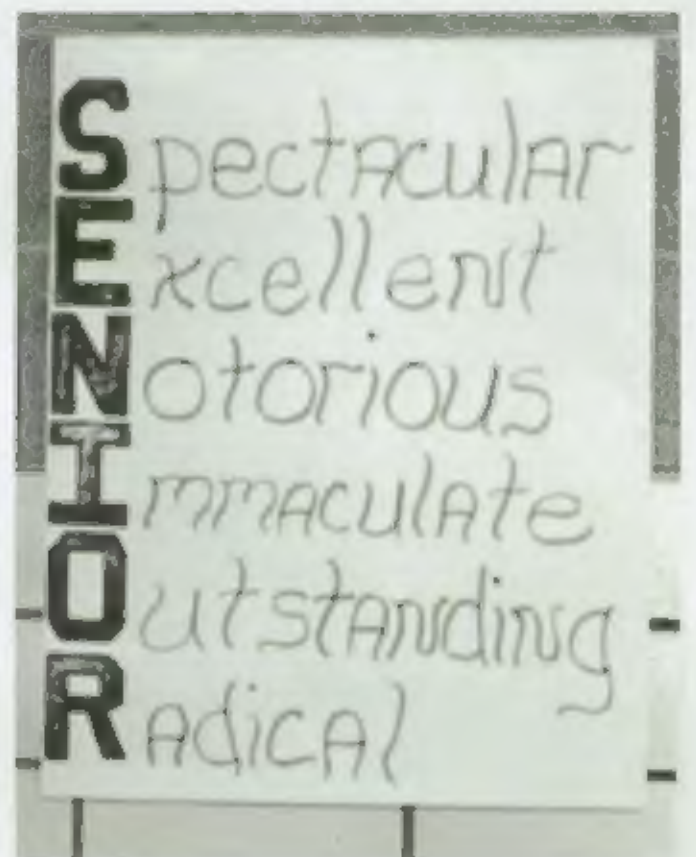 Spectacular
Excellent
Notorious
Immaculate
Outstanding
Radical